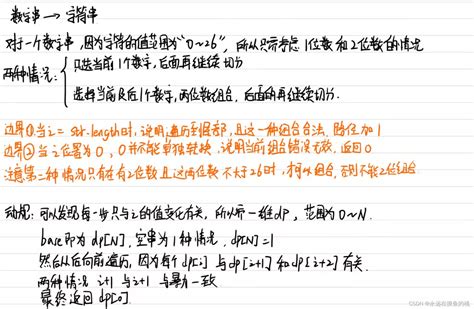 数字串 → 字符串
对于一个数字串，因为字符的值范围为"0~26"，所以只需考虑1位数和2位数的情况
两种情况：{ 只选当前1个数字，后面再继续切分
选择当前及后1个数字，两位数组合，后面再继续切分.
边界① 当i = str.length时，说明遍历到尾部，且这一种组合合法，路径加1
边界② 当i位置为0，0并不能单独转换，说明当前组合错误无效，返回0
注意第二种情况只有在有2位数且这两位数不大于26时，才可以组合，否则不能2位组合
动规：可以发现每一步只与i的值变化有关，所以需一维dp，范围为0~N.
base即为dp[N]，空串为1种情况，dp[N]=1
然后从后向前遍历，因为每个dp[i]与dp[i+1]和dp[i+2]有关.
两种情况 i+1 与 i+1 与暴力一致
最终返回 dp[0]
CSDN @永远在摸鱼的我